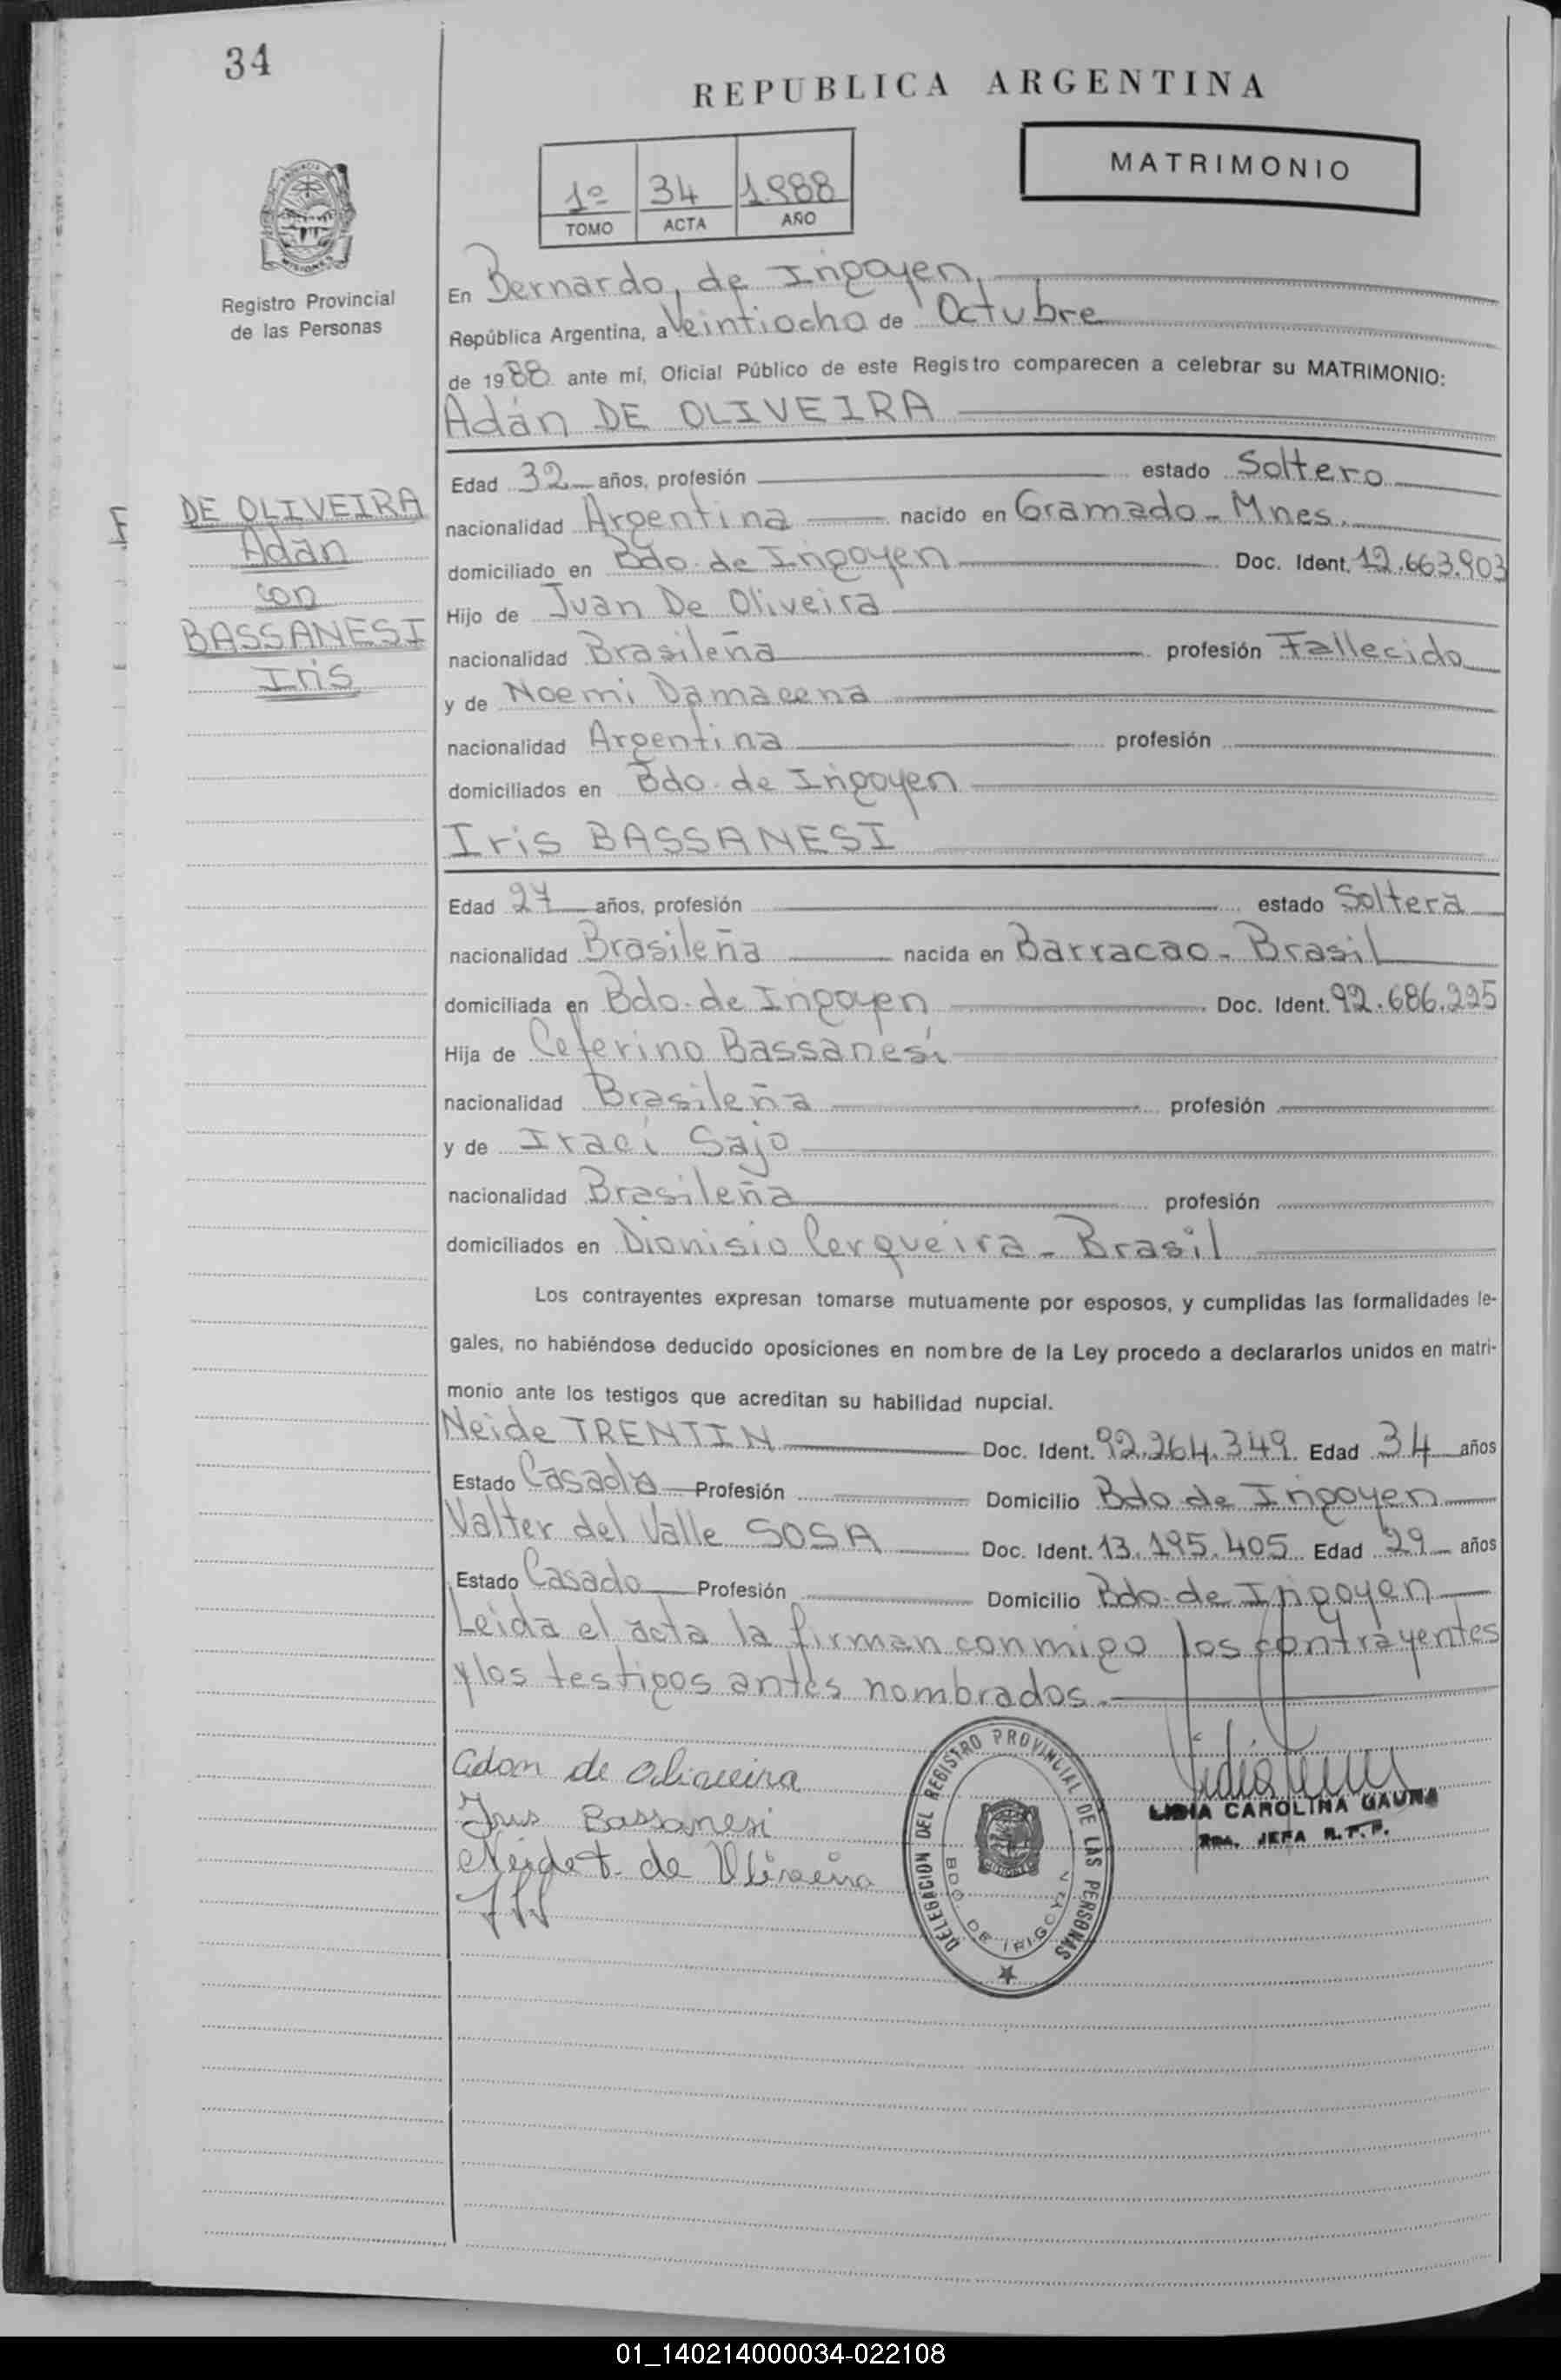 34
REPUBLICA ARGENTINA
MATRIMONIO
1º 34 1.988
TOMO ACTA AÑO
Registro Provincial
de las Personas
En Bernardo de Irigoyen
República Argentina, a Veintiocho de Octubre
de 1988 ante mí, Oficial Público de este Registro comparecen a celebrar su MATRIMONIO:
Adán DE OLIVEIRA
DE OLIVEIRA
Adán
con
BASSANESI
Iris
Edad 32 años, profesión estado Soltero
nacionalidad Argentina nacido en Gramado - Mnes.
domiciliado en Bdo. de Irigoyen Doc. Ident. 12.663.903
Hijo de Juan De Oliveira
nacionalidad Brasileña profesión Fallecido
y de Noemi Damacena
nacionalidad Argentina profesión
domiciliados en Bdo. de Irigoyen
Iris BASSANESI
Edad 27 años, profesión estado Soltera
nacionalidad Brasileña nacida en Barracao - Brasil
domiciliada en Bdo. de Irigoyen Doc. Ident. 92.686.225
Hija de Ceferino Bassanesi
nacionalidad Brasileña profesión
y de Iraci Sajo
nacionalidad Brasileña profesión
domiciliados en Dionisio Cerqueira - Brasil
Los contrayentes expresan tomarse mutuamente por esposos, y cumplidas las formalidades le-
gales, no habiéndose deducido oposiciones en nombre de la Ley procedo a declararlos unidos en matri-
monio ante los testigos que acreditan su habilidad nupcial.
Neide TRENTIN Doc. Ident. 92.264.349 Edad 34 años
Estado Casada Profesión Domicilio Bdo de Irigoyen
Valter del Valle SOSA Doc. Ident. 13.195.405 Edad 29 años
Estado Casado Profesión Domicilio Bdo. de Irigoyen
Leida el acta la firman conmigo los contrayentes
y los testigos antes nombrados.
Adam de Oliveira
Iris Bassanesi
Neide t. de Oliveira
DELEGACION DEL REGISTRO PROVINCIAL DE LAS PERSONAS
BDO. DE IRIGOYEN
LIDIA CAROLINA GAUNA
JEFA R.P.P.
01_140214000034-022108